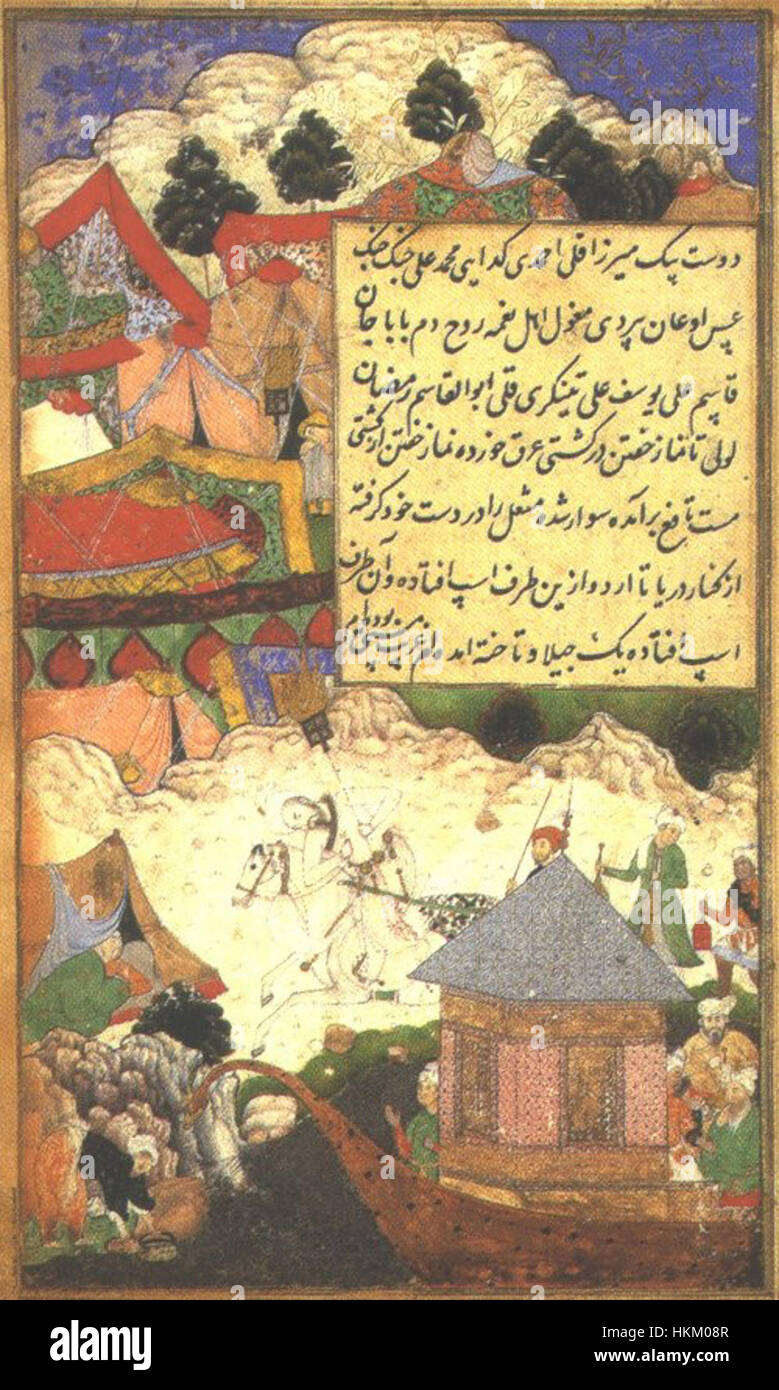 دوست بیک میرزا قلی احمدی کدایی محمد علی جنک جنک
عسس اوغان بردی مغول اهل نغمه روح دم بابا جان
قاسم علی یوسف علی تینکری قلی ابوالقاسم رمضان
لولی تا نماز خفتن در کشتی عرق خورده نماز خفتن از کشتی
مست تافع برآمده سوار شده مشعل را در دست خود کرفته
از کنار دریا تا اردو ازین طرف اسپ افتاده و آن طرف
اسپ افتاده یک جیلاو تاخته آمده ام غریب مستی بوده ام
alamy
Image ID: HKM08R
www.alamy.com